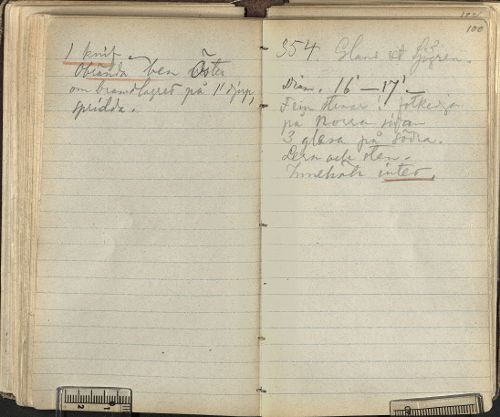 1 knif.
Obrända ben Öster
om brandlagret på 1' djup,
spridda.
100
354. Gland
Diam. 16'–17'.
Fem stenar i fotkedja
på norra sidan
3 glesa på södra.
Lera och sten.
Innehöll intet.